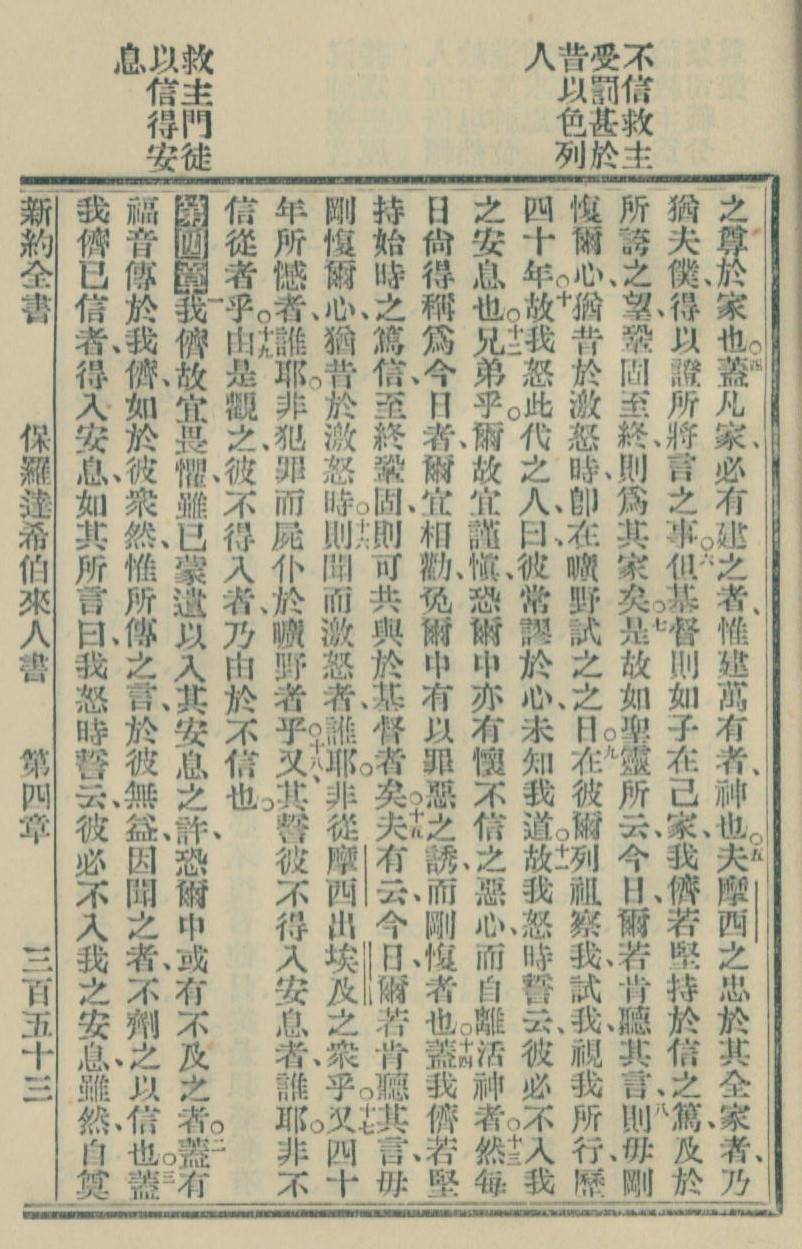 不信救主
受罰甚於
昔以色列
人
救主門徒
以信得安
息
之尊於家也。四蓋凡家、必有建之者、惟建萬有者、神也。五夫摩西之忠於其全家者、乃
猶夫僕、得以證所將言之事。六但基督則如子在己家、我儕若堅持於信之篤、及於
所誇之望、鞏固至終、則爲其家矣。七是故如聖靈所云、今日、爾若肯聽其言、八則毋剛
愎爾心、猶昔於激怒時、卽在曠野試之之日。九在彼爾列祖察我、試我、視我所行、歷
四十年。十故我怒此代之人、曰、彼常謬於心、未知我道。十一故我怒時誓云、彼必不入我
之安息也。十二兄弟乎。爾故宜謹愼、恐爾中亦有懷不信之惡心、而自離活神者。十三然每
日尙得稱爲今日者、爾宜相勸、免爾中有以罪惡之誘、而剛愎者也。十四蓋我儕若堅
持始時之篤信、至終鞏固、則可共與於基督者矣。十五夫有云、今日、爾若肯聽其言、毋
剛愎爾心、猶昔於激怒時。十六則聞而激怒者、誰耶。非從摩西出埃及之衆乎。十七又四十
年所憾者、誰耶。非犯罪而屍仆於曠野者乎。十八又其誓彼不得入安息者、誰耶。非不
信從者乎。十九由是觀之、彼不得入者、乃由於不信也。
第四章一我儕故宜畏懼、雖已蒙遺以入其安息之許、恐爾中或有不及之者。二蓋有
福音傳於我儕、如於彼衆然、惟所傳之言、於彼無益、因聞之者、不劑之以信也。三蓋
我儕已信者、得入安息、如其所言曰、我怒時誓云、彼必不入我之安息、雖然、自奠
新約全書 保羅達希伯來人書 第四章 三百五十三